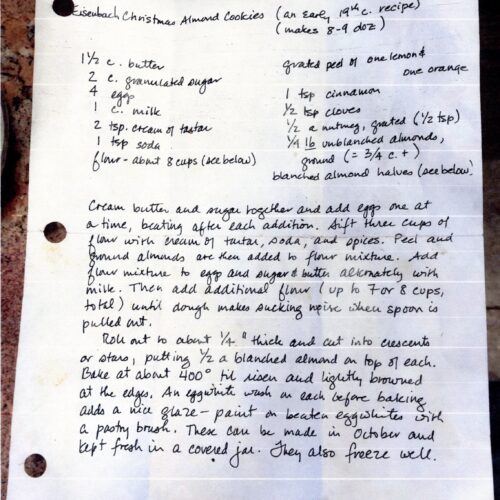 Eisenbach Christmas Almond Cookies (an early 19th c. recipe)
(makes 8-9 doz)
1½ c. butter
2 c. granulated sugar
4 eggs
1 c. milk
2 tsp. cream of tartar
1 tsp soda
flour - about 8 cups (see below)
grated peel of one lemon &
one orange
1 tsp cinnamon
½ tsp cloves
½ a nutmeg, grated (½ tsp)
¼ lb unblanched almonds,
ground (= 3/4 c. +)
blanched almond halves (see below)
Cream butter and sugar together and add eggs one at
a time, beating after each addition. Sift three cups of
flour with cream of tartar, soda, and spices. Peel and
ground almonds are then added to flour mixture. Add
flour mixture to egg and sugar & butter alternately with
milk. Then add additional flour (up to 7 or 8 cups,
total) until dough makes sucking noise when spoon is
pulled out.
Roll out to about ¼" thick and cut into crescents
or stars, putting ½ a blanched almond on top of each.
Bake at about 400° til risen and lightly browned
at the edges. An eggwhite wash on each before baking
adds a nice glaze - paint on beaten eggwhites with
a pastry brush. These can be made in October and
kept fresh in a covered jar. They also freeze well.